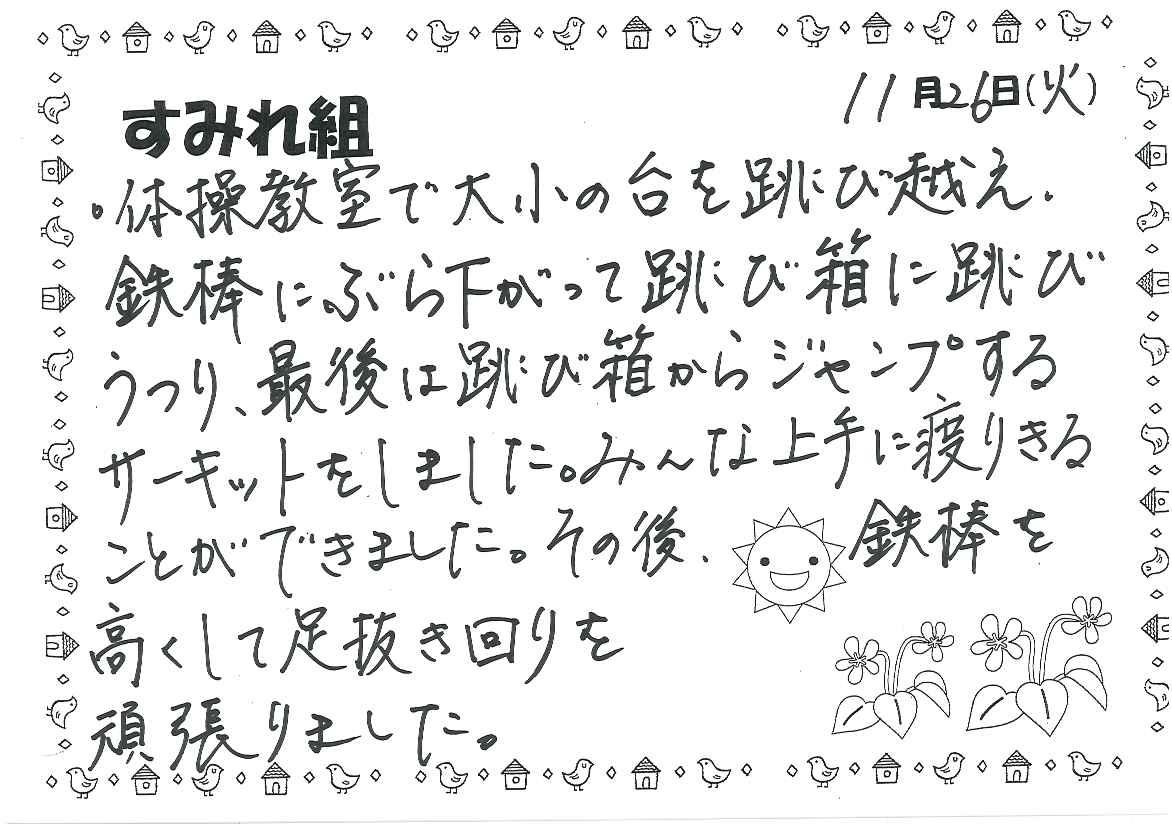 11月26日(火)
すみれ組
・体操教室で大小の台を跳び越え、
鉄棒にぶら下がって跳び箱に跳び
うつり、最後は跳び箱からジャンプする
サーキットをしました。みんな上手に渡りきる
ことができました。その後、鉄棒を
高くして足抜き回りを
頑張りました。